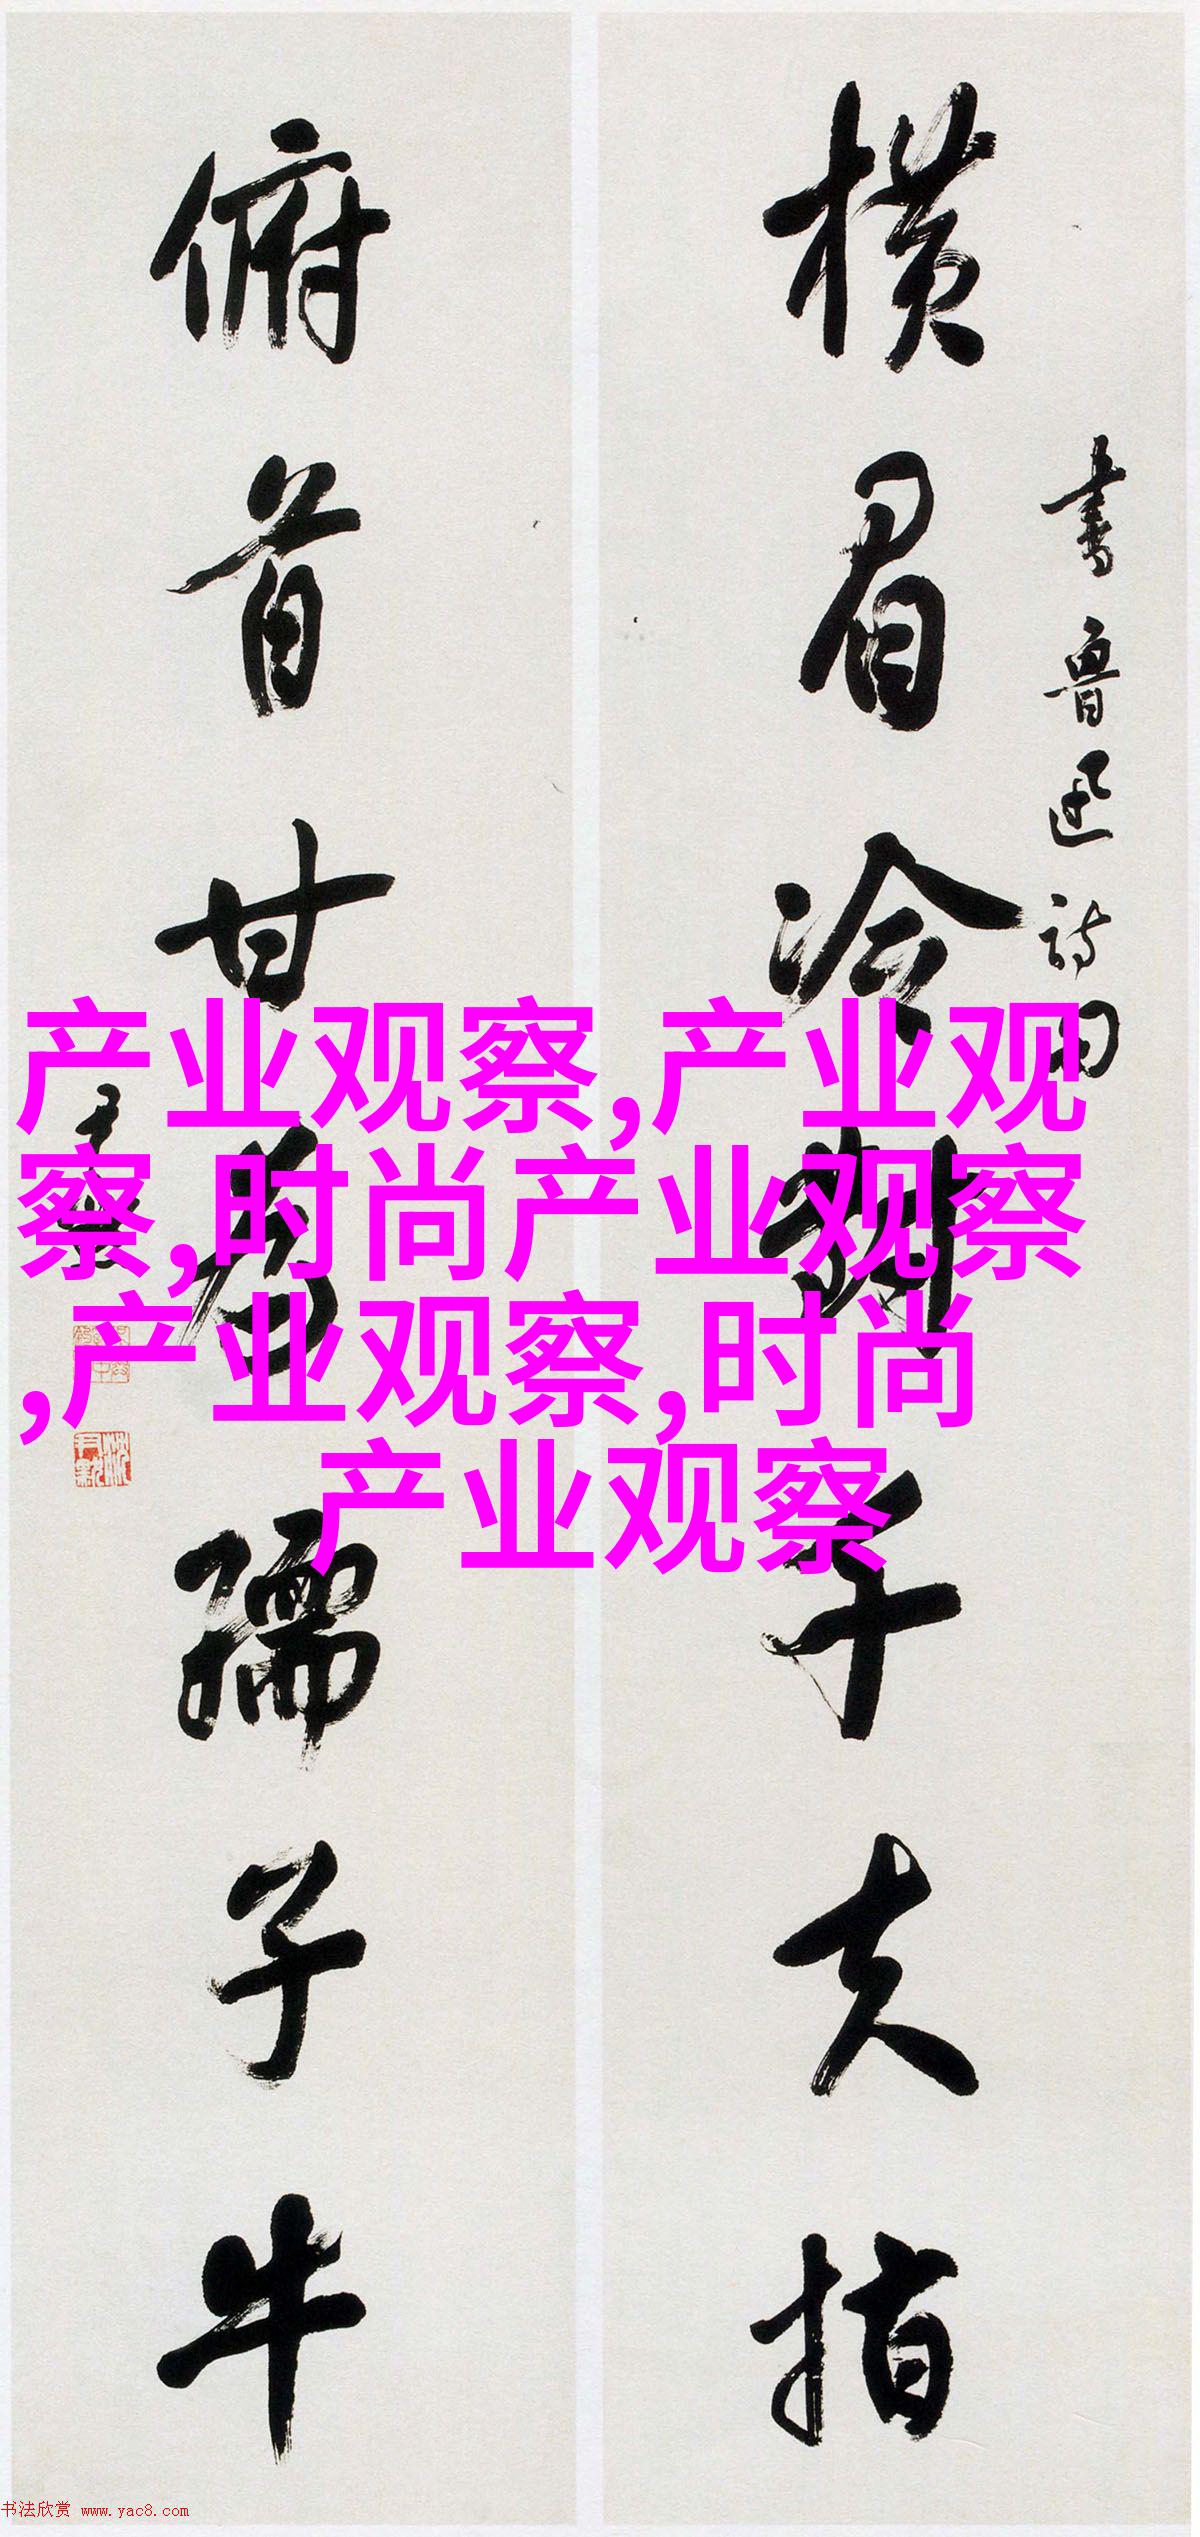 横眉冷对千夫指
书鲁迅诗句
俯首甘为孺子牛
尹默
产业观察,产业观
察,时尚产业观察
,产业观察,时尚
产业观察
书法欣赏 www.yac8.com